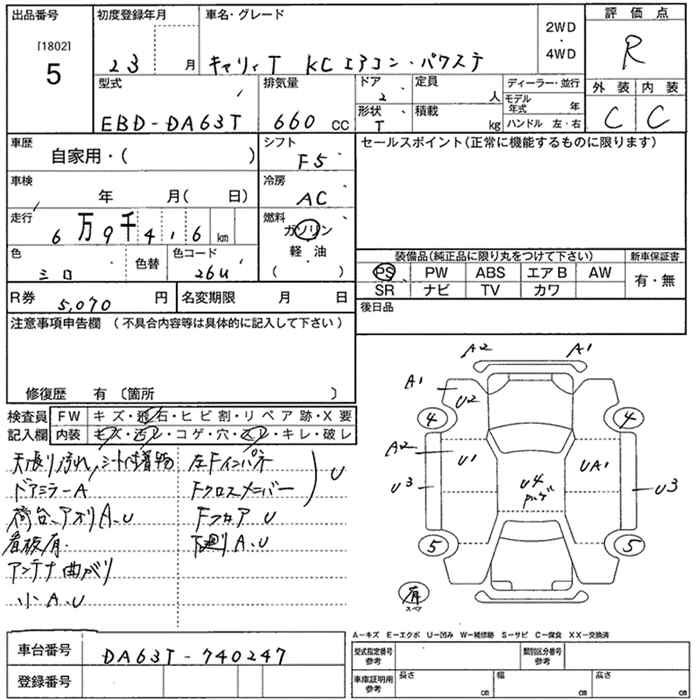 出品番号 初度登録年月 車名・グレード 2WD・4WD 評価点
[1802]
5
23 月 キャリィT KCエアコン・パワステ R
型式 排気量 ドア 2 定員 人 ディーラー・並行 外装 内装
EBD-DA63T 660 CC 形状 T 積載 kg モデル年式 年 C C
ハンドル 左・右
車歴 自家用・( ) シフト F5 セールスポイント(正常に機能するものに限ります)
車検 年 月( 日) 冷房 AC
走行 6万9千4,6 km 燃料 ガソリン
軽・油
( )
色 シロ 色替 色コード 26U
装備品(純正品に限り丸をつけて下さい) 新車保証書
PS PW ABS エアB AW 有・無
SR ナビ TV カワ
R券 5,070 円 名変期限 月 日 後日品
注意事項申告欄 (不具合内容等は具体的に記入して下さい)
修復歴 有 〔箇所 〕
検査員 FW キズ・飛石・ヒビ割・リペア跡・X要
記入欄 内装 キズ・汚レ・コゲ・穴・スレ・キレ・破レ
天張り汚れ,シート付着物 左Fインパネ
ドアミラーA Fクロスメンバー U
荷台、アオリA.U Fフロア U
看板有 下廻りA.U
アンテナ曲がり
小A.U
A2 A1
A1 U2
4 4
A2 U1 UA1
U3 U4 U3
5 5
有
スペア
A−キズ E−エクボ U−凹み W−補修跡 S−サビ C−腐食 XX−交換済
車台番号 DA63T-740247
登録番号
型式指定番号 参考 類別区分番号 参考
車庫証明用 参考 長さ cm 幅 cm 高さ cm